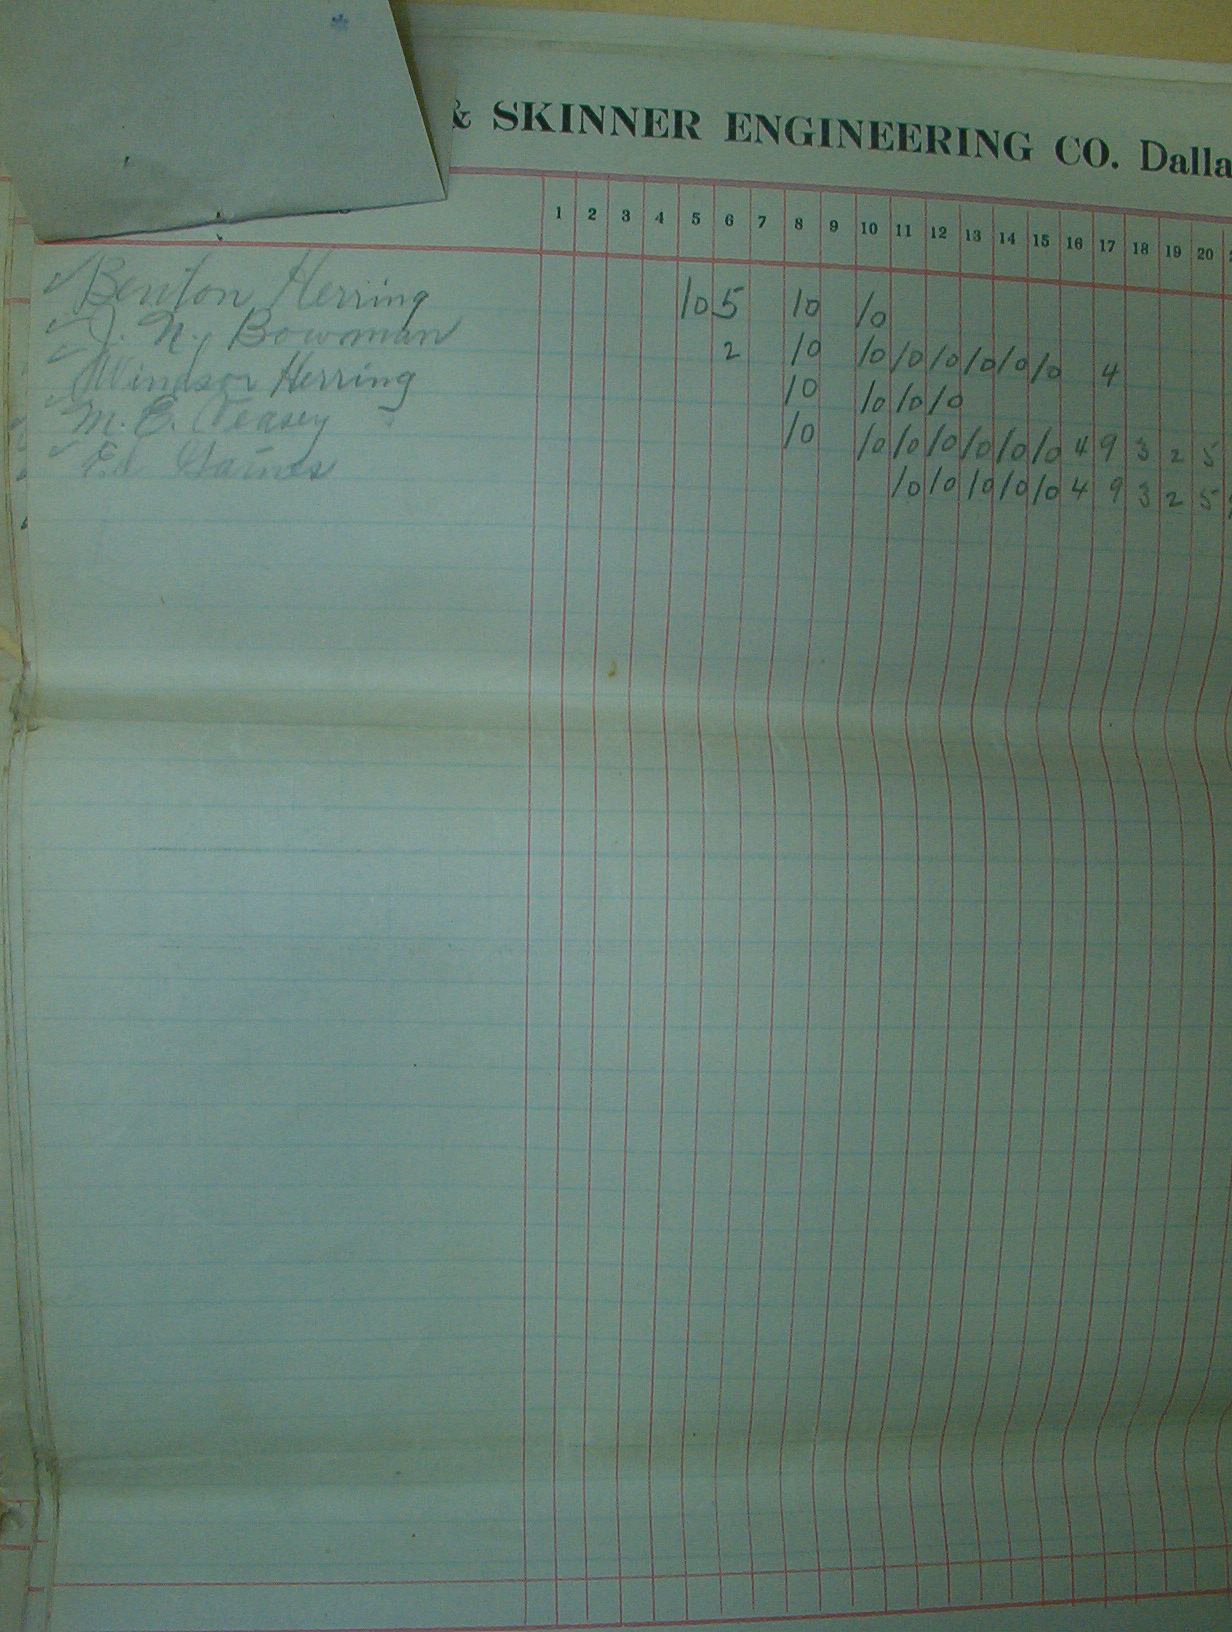 & SKINNER ENGINEERING CO. Dalla
1 2 3 4 5 6 7 8 9 10 11 12 13 14 15 16 17 18 19 20
✓ Benton Herring 10 5 10 10
✓ J. N. Bowman 2 10 10 10 10 10 10 10 4
✓ Windsor Herring 10 10 10 10
✓ M. E. Veasey 10 10 10 10 10 10 10 4 9 3 2 5
✓ Ed Gaines 10 10 10 10 10 4 9 3 2 5